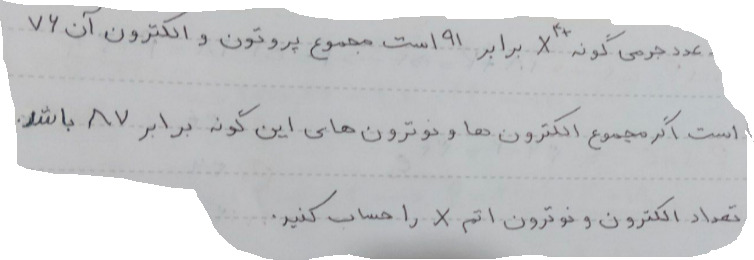 عدد جرمی گونه X⁴⁺ برابر ۹۱ است مجموع پروتون و الکترون آن ۷۶
است اگر مجموع الکترون ها و نوترون های این گونه برابر ۸۷ باشد.
تعداد الکترون و نوترون اتم X را حساب کنید.